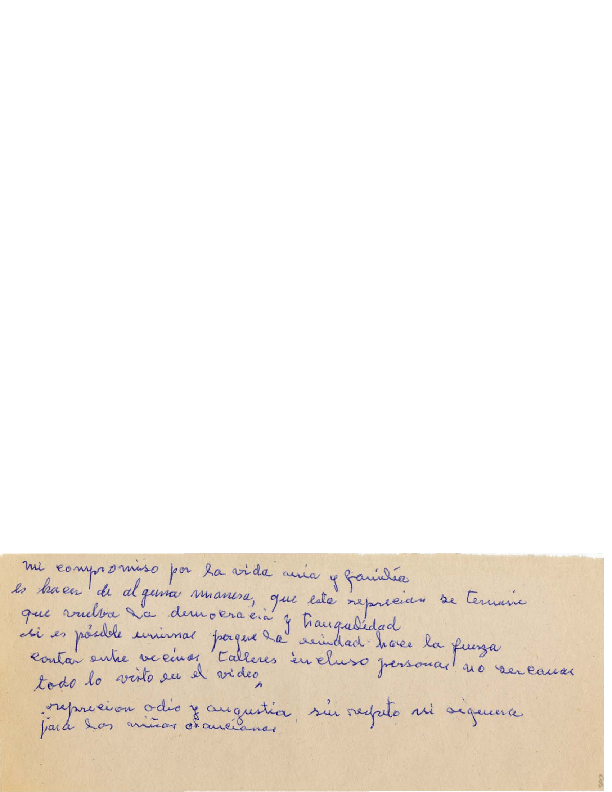 mi compromiso por la vida mia y familia
es hacer de alguna manera, que esta represion se termine
que vuelva la democracia y tranquilidad
si es posible unirnos porque la unidad hace la fuerza
contar entre vecinos talleres incluso personas no cercanas
todo lo visto en el video
represion odio y angustia, sin respeto ni siquiera
para los niños o ancianos